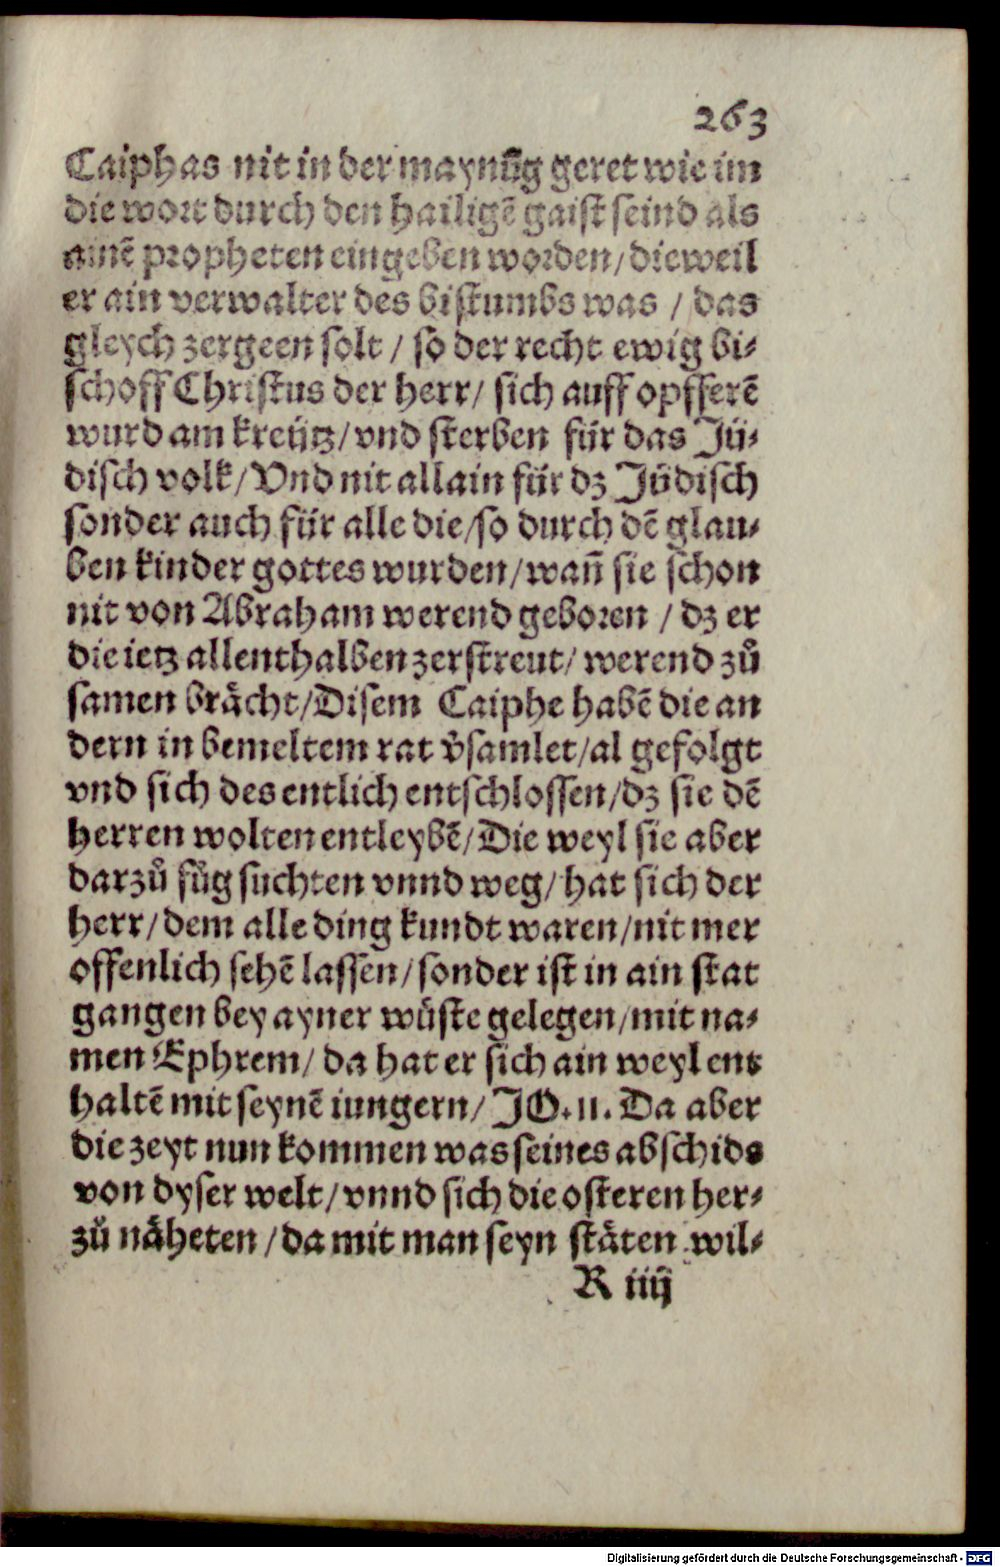 263
Caiphas nit in der maynūg geret wie im
die wort durch den hailigē gaist seind als
ainē propheten eingeben worden/dieweil
er ain verwalter des bistumbs was / das
gleych zergeen solt / so der recht ewig bi-
schoff Christus der herr/ sich auff opfferē
wurd am kreütz/vnd sterben für das Jü-
disch volk/Vnd nit allain für dz Jüdisch
sonder auch für alle die/so durch dē glau-
ben kinder gottes wurden/wañ sie schon
nit von Abraham werend geboren / dz er
die ietz allenthalben zerstreut/ werend zů
samen brächt/Disem Caiphe habē die an
dern in bemeltem rat v̉samlet/al gefolgt
vnd sich des entlich entschlossen/dz sie dē
herren wolten entleybē/Die weyl sie aber
darzů fůg suchten vnnd weg/hat sich der
herr/dem alle ding kundt waren/nit mer
offenlich sehē lassen/sonder ist in ain stat
gangen bey ayner wüste gelegen/mit na-
men Ephrem/ da hat er sich ain weyl ent
haltē mit seynē iungern/ JO.11. Da aber
die zeyt nun kommen was seines abschids
von dyser welt/vnnd sich die osteren her-
zů näheten /da mit man seyn stäten wil-
R iiij
Digitalisierung gefördert durch die Deutsche Forschungsgemeinschaft - DFG